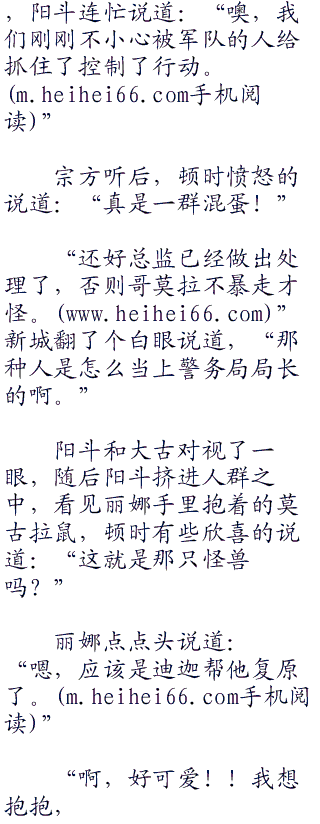 ，阳斗连忙说道：“噢，我
们刚刚不小心被军队的人给
抓住了控制了行动。
(m.heihei66.com手机阅
读)”
宗方听后，顿时愤怒的
说道：“真是一群混蛋！”
“还好总监已经做出处
理了，否则哥莫拉不暴走才
怪。(www.heihei66.com)”
新城翻了个白眼说道，“那
种人是怎么当上警务局局长
的啊。”
阳斗和大古对视了一
眼，随后阳斗挤进人群之
中，看见丽娜手里抱着的莫
古拉鼠，顿时有些欣喜的说
道：“这就是那只怪兽
吗？”
丽娜点点头说道：
“嗯，应该是迪迦帮他复原
了。(m.heihei66.com手机阅
读)”
“啊，好可爱！！我想
抱抱，